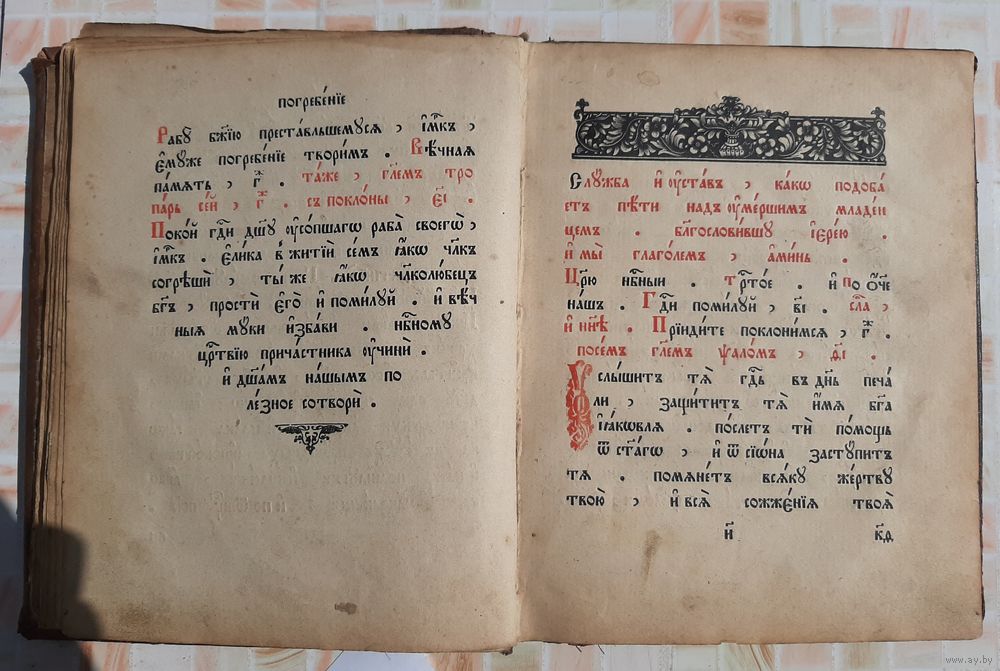 погребе́нїе
Рабꙋ̀ бж҃їю преста́вльшемꙋсѧ , и҆́мк҃ъ ,
є҆мꙋ́же погребе́нїе твори́мъ . Вѣ́чнаѧ
па́мѧть , г҃ж . та́же , гл҃емъ тро
па́рь се́й , г҃ж . съ покло́ны , є҃і .
Поко́й гдⷭ҇и дш҃ꙋ ᲂу҆со́пшагѡ раба̀ своегѡ̀ ,
и҆́мк҃ъ . є҆ли́ка в житїи́ се́мъ ꙗ҆́кѡ чл҃къ
согрѣшѝ , ты́ же ꙗ҆́кѡ чл҃колю́бецъ
бг҃ъ , простѝ є҆го̀ и҆ поми́лꙋй . и҆ вѣ́ч
ныѧ мꙋ́ки и҆зба́ви . нбⷭ҇номꙋ
црⷭ҇твїю прича́стника ᲂу҆чинѝ .
и҆ дш҃а́мъ на́шымъ по
ле́зное сотворѝ .
Слꙋ́жба и҆ ᲂу҆ста́въ , ка́кѡ подоба́
етъ пѣ́ти надъ ᲂу҆ме́ршимъ младе́н
цемъ . бл҃гослови́вшꙋ і҆ере́ю .
и҆ мы̀ глаго́лемъ , а҆ми́нь .
Цр҃ю нбⷭ҇ный . трⷭ҇то́е . и҆ по ѻ҆́ч҃е
на́шъ . Гдⷭ҇и поми́лꙋй , в҃і . сла́ва ,
и҆ нн҃ѣ . Прїиди́те поклони́мсѧ , г҃ж .
посе́мъ гл҃емъ ѱало́мъ , ѳ҃і .
Услы́шитъ тѧ̀ гдⷭ҇ь въ дн҃ь печа́
ли , защи́титъ тѧ̀ и҆́мѧ бг҃а
і҆а́кѡвлѧ . по́слетъ тѝ по́мощь
ѿ ст҃а́гѡ , и҆ ѿ сїѡ́на застꙋ́питъ
тѧ . помѧне́тъ всѧ́кꙋ же́ртвꙋ
твою̀ , и҆ всѧ̀ сожже́нїѧ твоѧ̀
и҆̀ к҃ѧ
www.ay.by